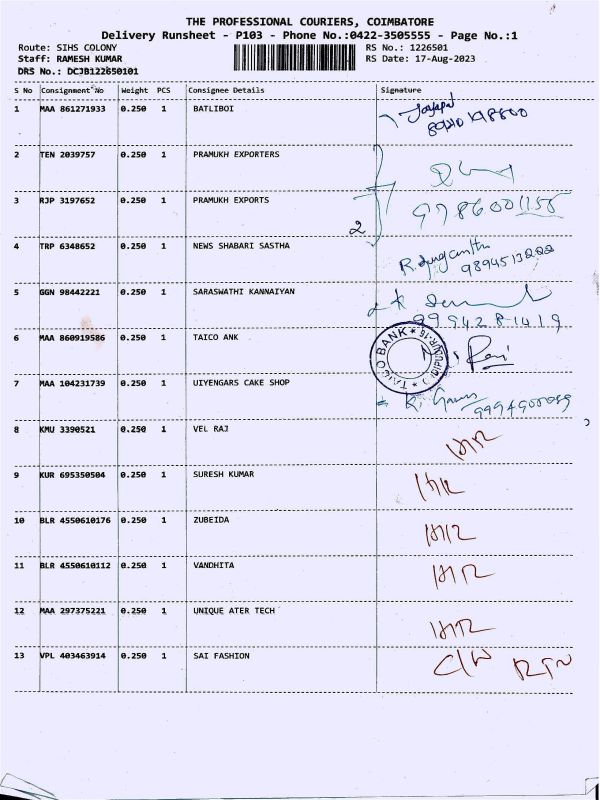 THE PROFESSIONAL COURIERS, COIMBATORE
Delivery Runsheet - P103 - Phone No.:0422-3505555 - Page No.:1
Route: SIHS COLONY RS No.: 1226501
Staff: RAMESH KUMAR RS Date: 17-Aug-2023
DRS No.: DCJB122650101
S No Consignment No Weight PCS Consignee Details Signature
1 MAA 861271933 0.250 1 BATLIBOI
2 TEN 2039757 0.250 1 PRAMUKH EXPORTERS
3 RJP 3197652 0.250 1 PRAMUKH EXPORTS
2
4 TRP 6348652 0.250 1 NEWS SHABARI SASTHA
9894513222
5 GGN 98442221 0.250 1 SARASWATHI KANNAIYAN
6 MAA 860919586 0.250 1 TAICO ANK
TAICO BANK
7 MAA 104231739 0.250 1 UIYENGARS CAKE SHOP
8 KMU 3390521 0.250 1 VEL RAJ
9 KUR 695350504 0.250 1 SURESH KUMAR
10 BLR 4550610176 0.250 1 ZUBEIDA
11 BLR 4550610112 0.250 1 VANDHITA
12 MAA 297375221 0.250 1 UNIQUE ATER TECH
13 VPL 403463914 0.250 1 SAI FASHION